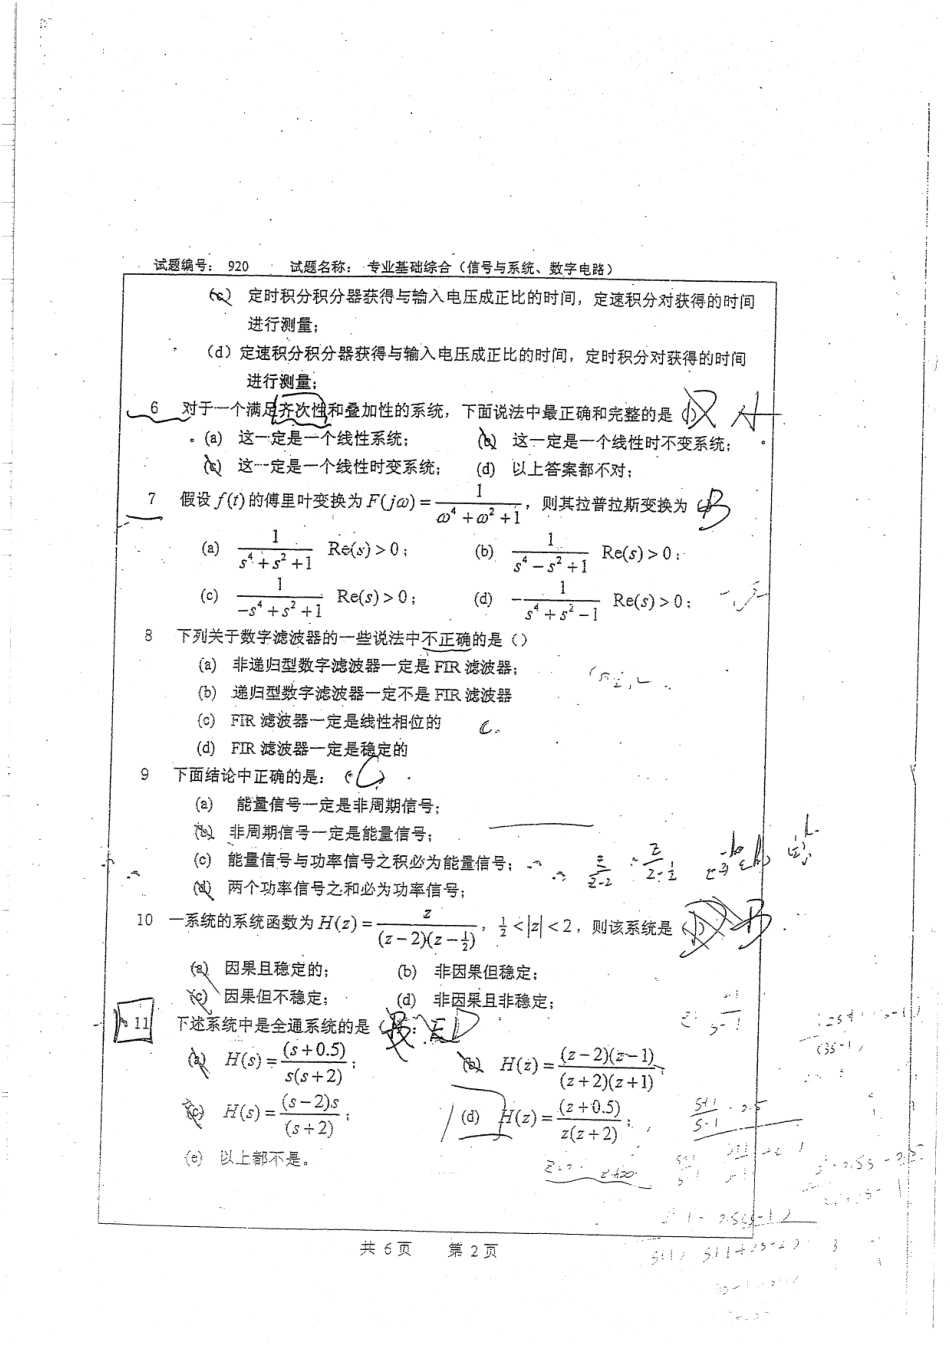 试题编号： 920 试题名称： 专业基础综合（信号与系统、数字电路）
(c) 定时积分积分器获得与输入电压成正比的时间，定速积分对获得的时间
进行测量；
(d) 定速积分积分器获得与输入电压成正比的时间，定时积分对获得的时间
进行测量；
6 对于一个满足齐次性和叠加性的系统，下面说法中最正确和完整的是 A
(a) 这一定是一个线性系统； (b) 这一定是一个线性时不变系统；
(c) 这一定是一个线性时变系统； (d) 以上答案都不对；
7 假设 f(t) 的傅里叶变换为 F(jω) = 1/(ω⁴+ω²+1)，则其拉普拉斯变换为 B
(a) 1/(s⁴+s²+1) Re(s)>0； (b) 1/(s⁴-s²+1) Re(s)>0；
(c) 1/(-s⁴+s²+1) Re(s)>0； (d) -1/(s⁴+s²-1) Re(s)>0；
8 下列关于数字滤波器的一些说法中不正确的是（）
(a) 非递归型数字滤波器一定是 FIR 滤波器；
(b) 递归型数字滤波器一定不是 FIR 滤波器
(c) FIR 滤波器一定是线性相位的 C.
(d) FIR 滤波器一定是稳定的
9 下面结论中正确的是：(C)
(a) 能量信号一定是非周期信号；
(b) 非周期信号一定是能量信号；
(c) 能量信号与功率信号之积必为能量信号；
(d) 两个功率信号之和必为功率信号；
10 一系统的系统函数为 H(z) = z/((z-2)(z-½))，½<|z|<2，则该系统是 B
(a) 因果且稳定的； (b) 非因果但稳定；
(c) 因果但不稳定； (d) 非因果且非稳定；
11 下述系统中是全通系统的是 D
(a) H(s) = (s+0.5)/(s(s+2))； (b) H(z) = (z-2)(z-1)/((z+2)(z+1))；
(c) H(s) = (s-2)s/(s+2)； (d) H(z) = (z+0.5)/(z(z+2))；
(e) 以上都不是。
共 6 页 第 2 页